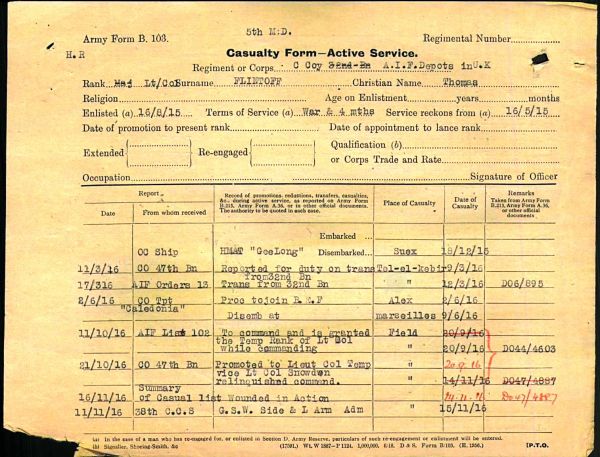 5th M.D.
Army Form B. 103.
Regimental Number
H.R
Casualty Form—Active Service.
Regiment or Corps C Coy 32nd Bn A.I.F. Depots in U.K
Rank Maj Lt/Col Surname FLINTOFF Christian Name Thomas
Religion Age on Enlistment years months
Enlisted (a) 16/8/15 Terms of Service (a) War & 4 mths Service reckons from (a) 16/5/15
Date of promotion to present rank Date of appointment to lance rank
Extended Re-engaged Qualification (b)
or Corps Trade and Rate
Occupation Signature of Officer
Report
Date From whom received
Record of promotions, reductions, transfers, casualties, &c., during active service, as reported on Army Form B.213, Army Form A.36, or in other official documents. The authority to be quoted in each case.
Place of Casualty
Date of Casualty
Remarks
Taken from Army Form B.213, Army Form A.36, or other official documents
Embarked
OC Ship HMAT "GeeLong" Disembarked Suex 18/12/15
11/3/16 CO 47th Bn Reported for duty on trans Tel-el-kebir 9/3/16
from 32nd Bn
17/316 AIF Orders 13 Trans from 32nd Bn " 12/3/16 DO6/895
2/6/16 CO Tpt Proc to join B.E.F Alex 2/6/16
"Caledonia" Disemb at marseilles 9/6/16
11/10/16 AIF List 102 To command and is granted Field 20/9/16
the Temp Rank of Lt Col
while commanding " 20/9/16 DO44/4603
21/10/16 CO 47th Bn Promoted to Lieut Col Temp " 20.9.16
vice Lt Col Snowden
relinquished command. " 14/11/16 DO47/4887
Summary
16/11/16 of Casual list Wounded in Action " 14.11.16 DO47/4887
11/11/16 38th C.C.S G.S.W. Side & L Arm Adm " 15/11/16
(a) In the case of a man who has re-engaged for, or enlisted in Section D. Army Reserve, particulars of such re-engagement or enlistment will be entered.
(b) Signaller, Shoeing-Smith, &c
[P.T.O.